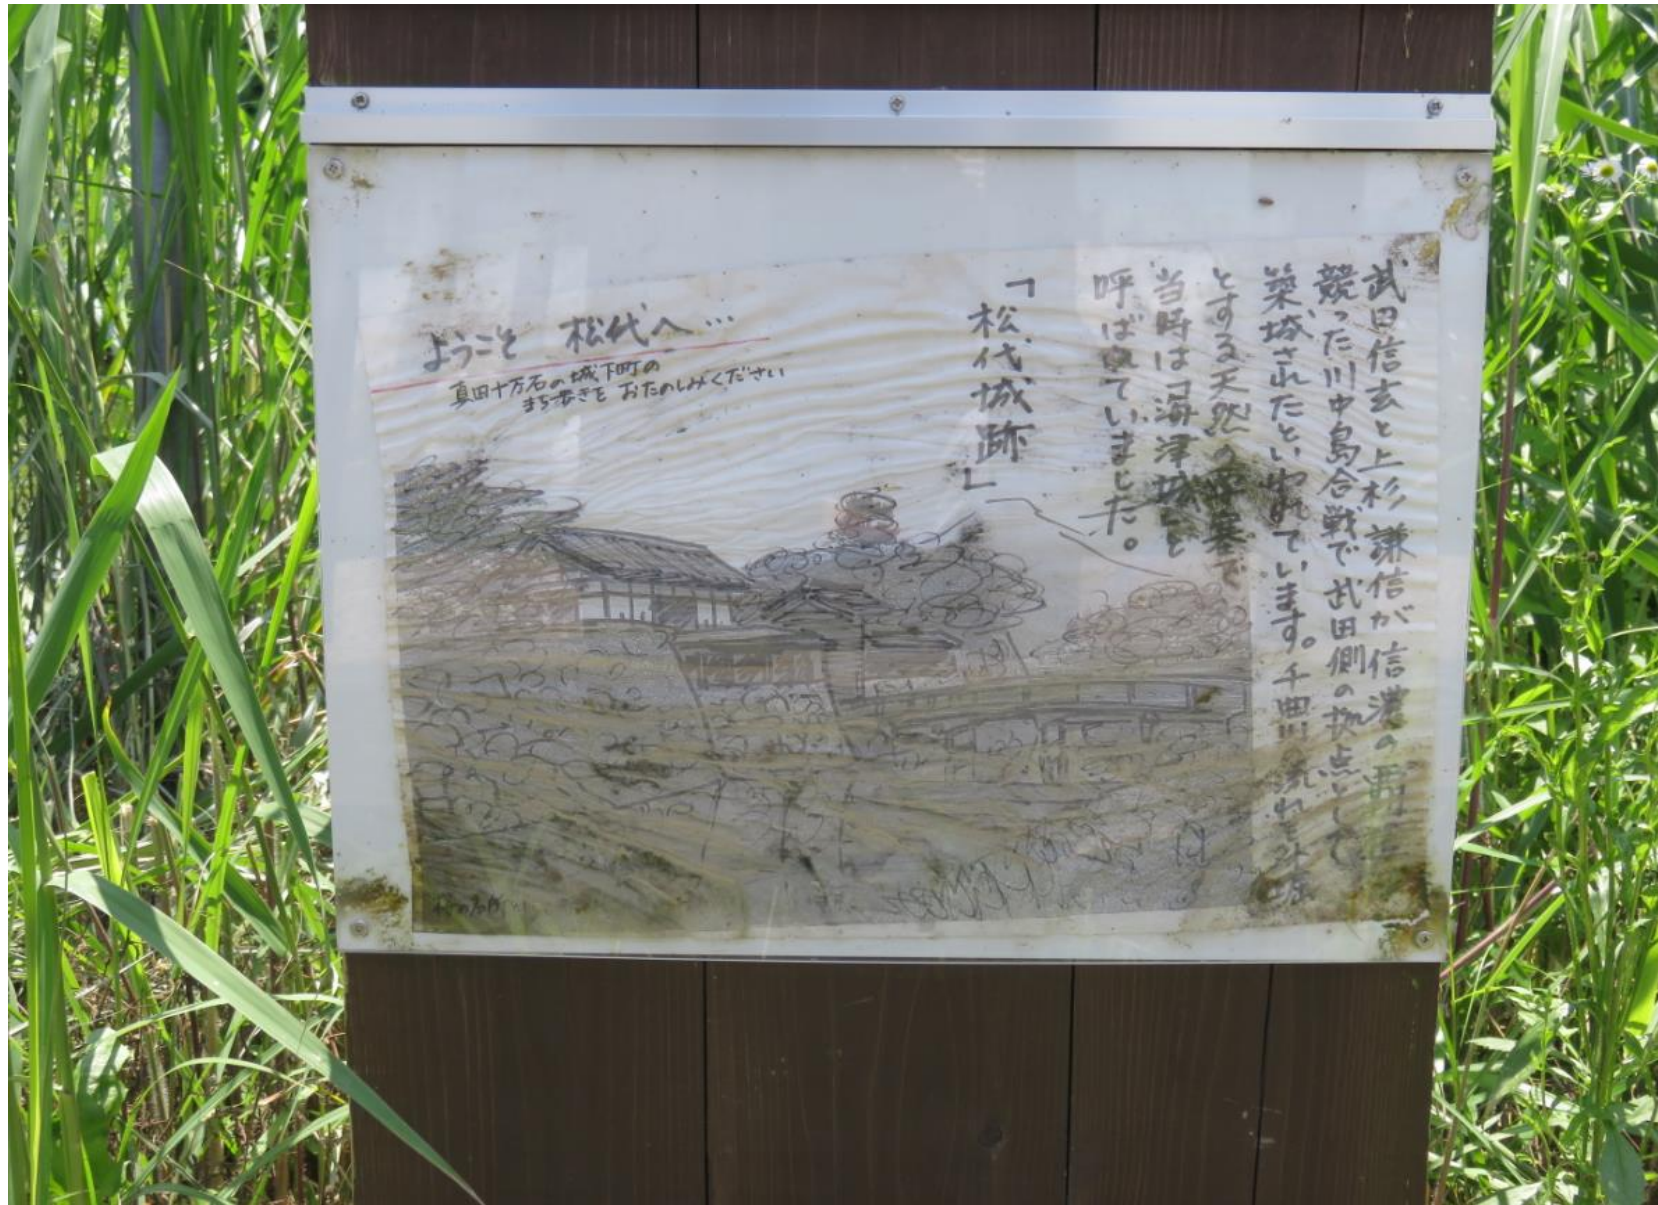 武田信玄と上杉謙信が信濃の
競った川中島合戦で武田側の拠点として
築城されたといわれています。千曲川の流れを外堀
とする天然の要塞で
当時は「海津城」と
呼ばれていました。
「松代城跡」
ようこそ 松代へ…
真田十万石の城下町の
まち歩きを おたのしみください